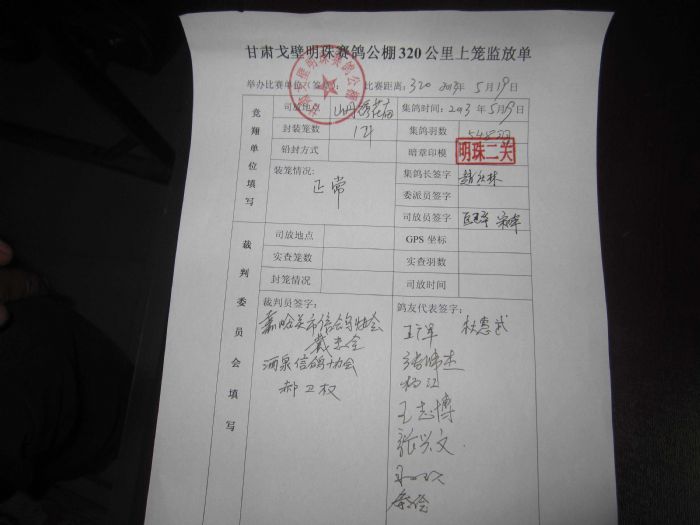 甘肃戈壁明珠赛鸽公棚320公里上笼监放单
举办比赛单位(签章): 比赛距离: 320 2013年5月19日
竞翔单位填写
司放地点 山丹绣花庙 集鸽时间: 2013年5月19日
封装笼数 12 集鸽羽数
铅封方式 暗章印模 明珠二关
装笼情况: 正常 集鸽长签字
委派员签字
司放员签字
裁判委员会填写
司放地点 GPS坐标
实查笼数 实查羽数
封笼情况 司放时间
裁判员签字: 鸽友代表签字:
嘉峪关市信鸽协会
酒泉信鸽协会
郝卫权
王军 杜惠武
杨江
王志博
张兴文